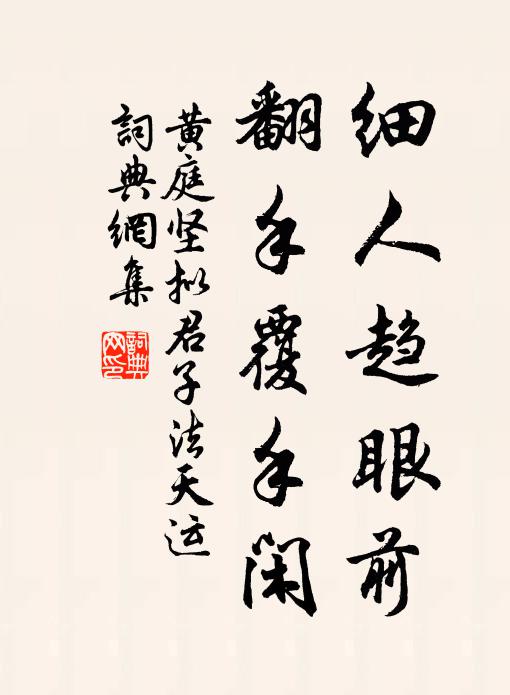 细人趋眼前
翻手覆手闲
黄庭坚拟君子法天运
詞典網集
詞典網印